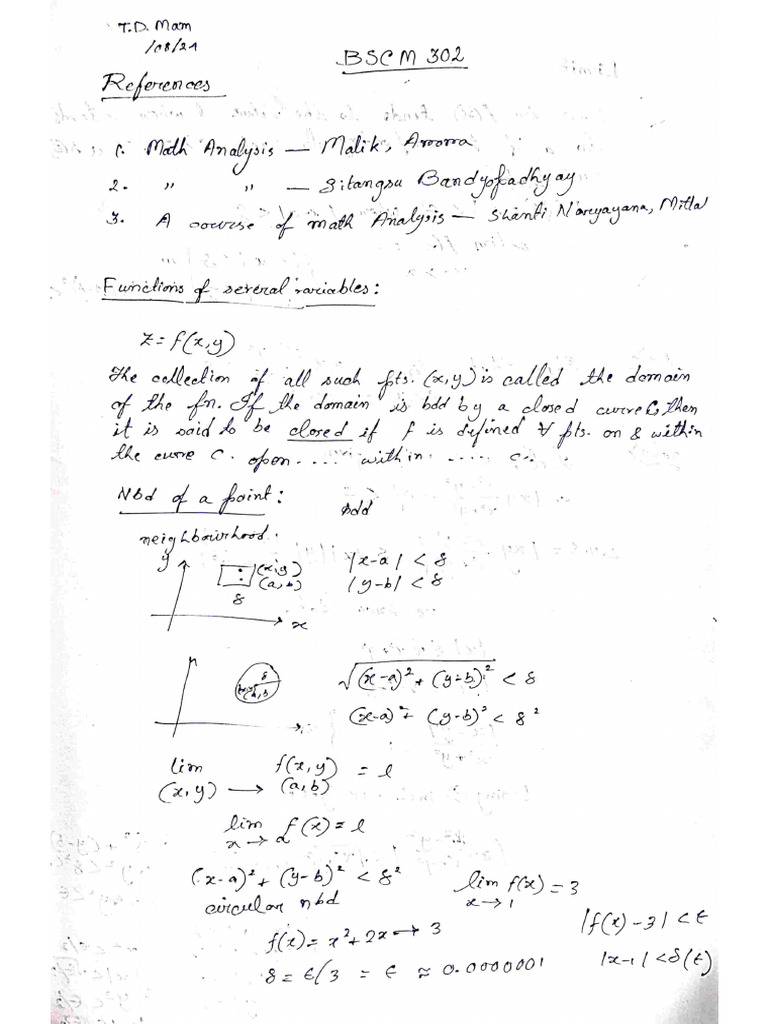 T.D. Mam
/08/21
BSCM 302
References
1. Math Analysis — Malik, Arora
2. " " — Sitangsu Bandyopadhyay
3. A course of math Analysis — Shanti Narayayana, Mittal
Functions of several variables:
z = f(x,y)
The collection of all such pts. (x,y) is called the domain
of the fn. If the domain is bdd by a closed curve C, then
it is said to be closed if f is defined ∀ pts. on & within
the curve C. open .... within ..... C.
Nbd of a point: bdd
neighbourhood.
y (x,y) |x-a| < δ
(a,b) |y-b| < δ
δ
x
δ √(x-a)² + (y-b)² < δ
(a,b)
(x-a)² + (y-b)² < δ²
lim f(x,y) = l
(x,y) → (a,b)
lim f(x) = l
x → a
(x-a)² + (y-b)² < δ²
circular nbd
lim f(x) = 3
x → 1
|f(x) - 3| < ε
f(x) = x² + 2x → 3
|x-1| < δ(ε)
δ = ε/3 = ε ≈ 0.0000001